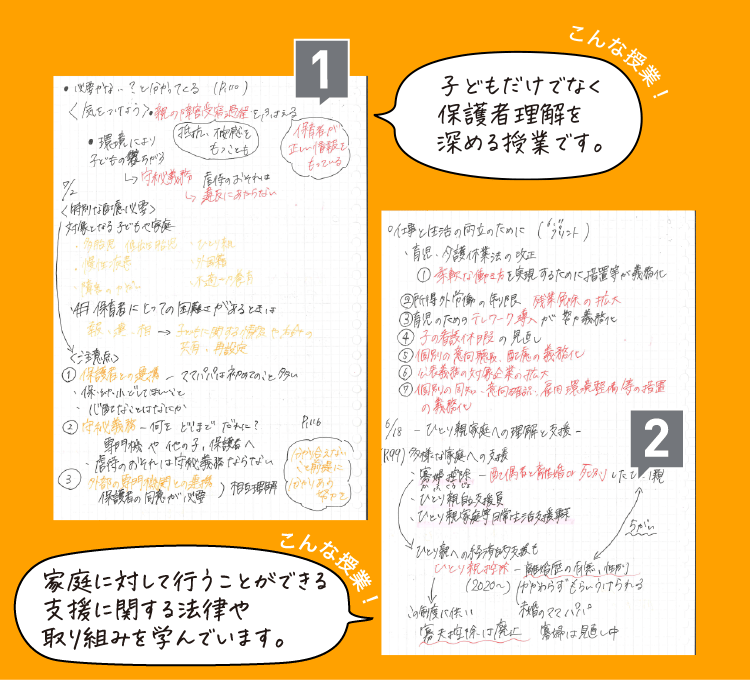 1
こんな授業！
子どもだけでなく
保護者理解を
深める授業です。
・必要かな…？と分かってくる (P.110)
＜気をつけよう＞・親の障害受容過程をふまえる
抵抗、不信感を
もつことも
保育者が
正しい情報を
もっている
・環境により
子どもの育ちがちがう
↳守秘義務 虐待のおそれは
↳違反にあたらない
7/2
＜特別な配慮必要＞
対象となる子どもや家庭
・ひとり親
・外国籍
・慢性疾患
↓相 保育者にとっての困難さが来るときは
報・連・相→子どもに関する情報や方向の
共有・再設定
＜ご注意点＞
① 保護者との連携 - ママパパは初めてのこと多い
② 守秘義務 - 何を どこまで だれに？
P.116
専門機や他の子、保護者へ
・虐待のおそれは守秘義務ならない
③ 外部の専門機関との連携
保護者の同意が必要 ）相互理解
分かり合えない
こと前提に
分かりあう
努力を
2
○仕事と生活の両立のために (6/11 プリント)
・育児・介護休業法の改正
① 柔軟な働き方を実現するために措置等が義務化
②所得外労働の制限 残業免除の拡大
③育児のためのテレワーク導入が努力義務化
④ 子の看護休暇の見直し
⑤ 個別の意向聴取、配慮の義務化
⑥ 公表義務の対象企業の拡大
⑦ 個別の周知・意向確認、雇用環境整備等の措置
の義務化
6/18 - ひとり親家庭への理解と支援 -
(P.99) 多様な家庭への支援
・寡婦控除 - 配偶者と離婚or死別したひとり親
・ひとり親自立支援員
・ひとり親家庭等日常生活支援事業
ちがい
ひとり親への経済的支援も
ひとり親控除 - 離婚歴の有無、性別
(2020～) かかわらずもらいうけられる
この制度に伴い 未婚のママ・パパ
寡夫控除は廃止 寡婦は見直し中
こんな授業！
家庭に対して行うことができる
支援に関する法律や
取り組みを学んでいます。